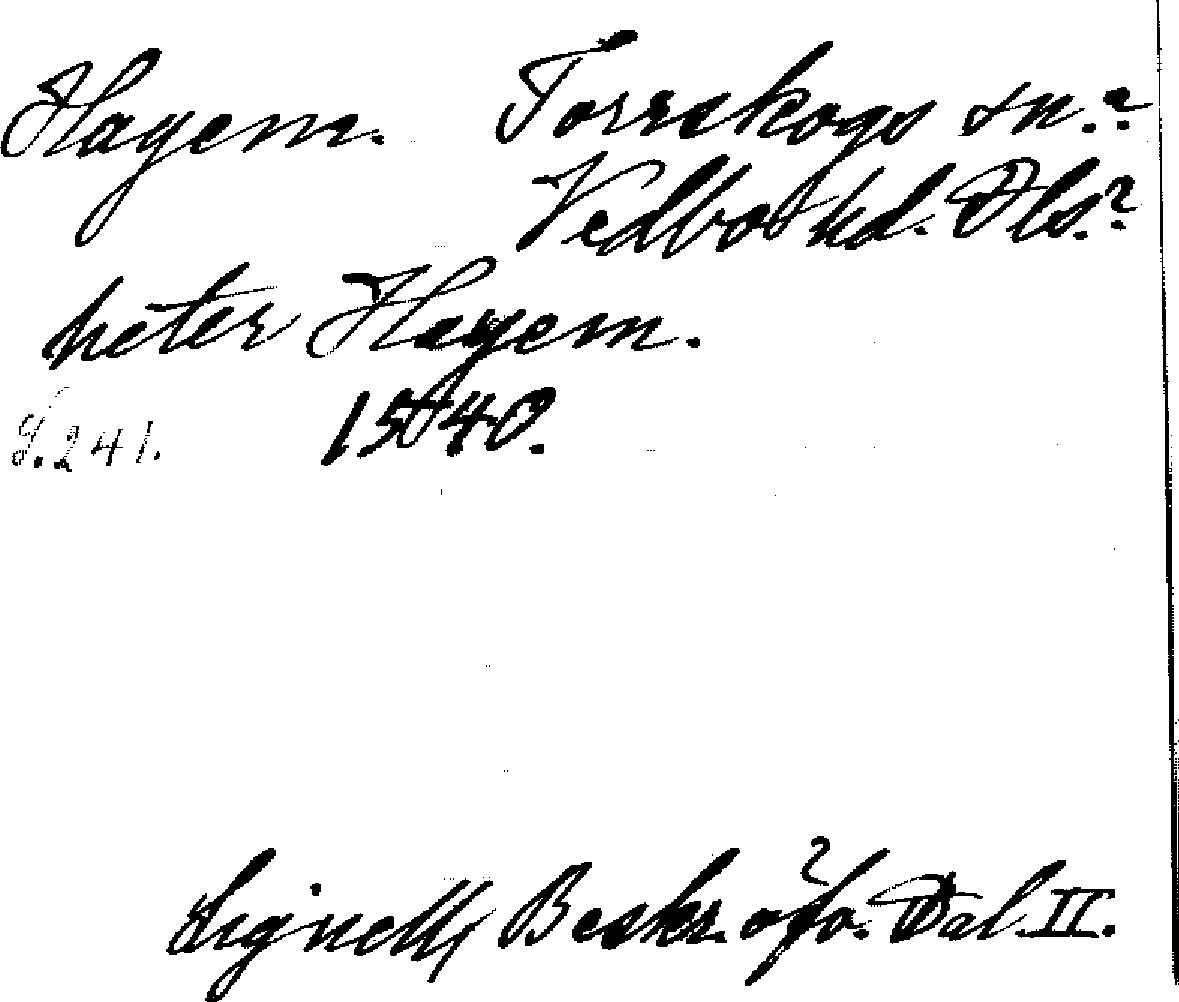 Hayem. Torrskogs sn.?
Vedbo hd. Dls.?
heter Hayem.
S. 241. 1540.
Lignell, Beskr. öfv. Dal. II.